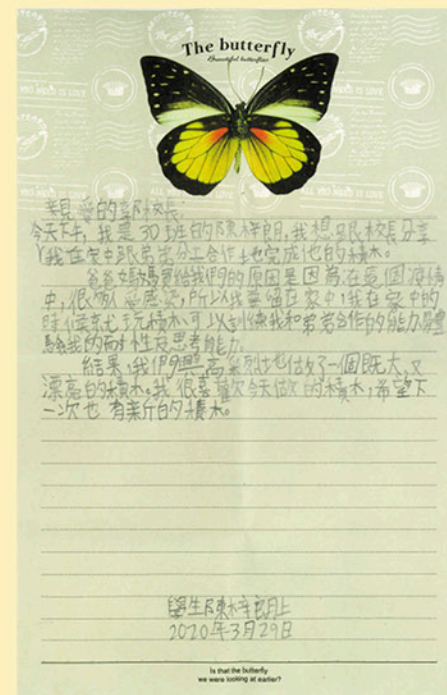 The butterfly
Beautiful butterflies
親愛的鄧校長:
今天下午,我是3D班的陳梓朗,我想跟校長分享
我在家中跟弟弟分工合作地完成他的積木。
爸爸媽媽買給我們的原因是因為在這個疫情
中,很多人感染,所以我要留在家中,我在家中的
時候就玩積木,可以訓練我和弟弟合作的能力,體
驗我的耐性及思考能力。
結果,我們興高采烈地做了一個既大,又
漂亮的積木。我很喜歡今天做的積木,希望下
一次也有新的積木。
學生陳梓朗上
2020年3月29日
Is that the butterfly
we were looking at earlier?